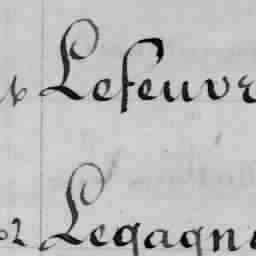 Lefeuvr
Legagn